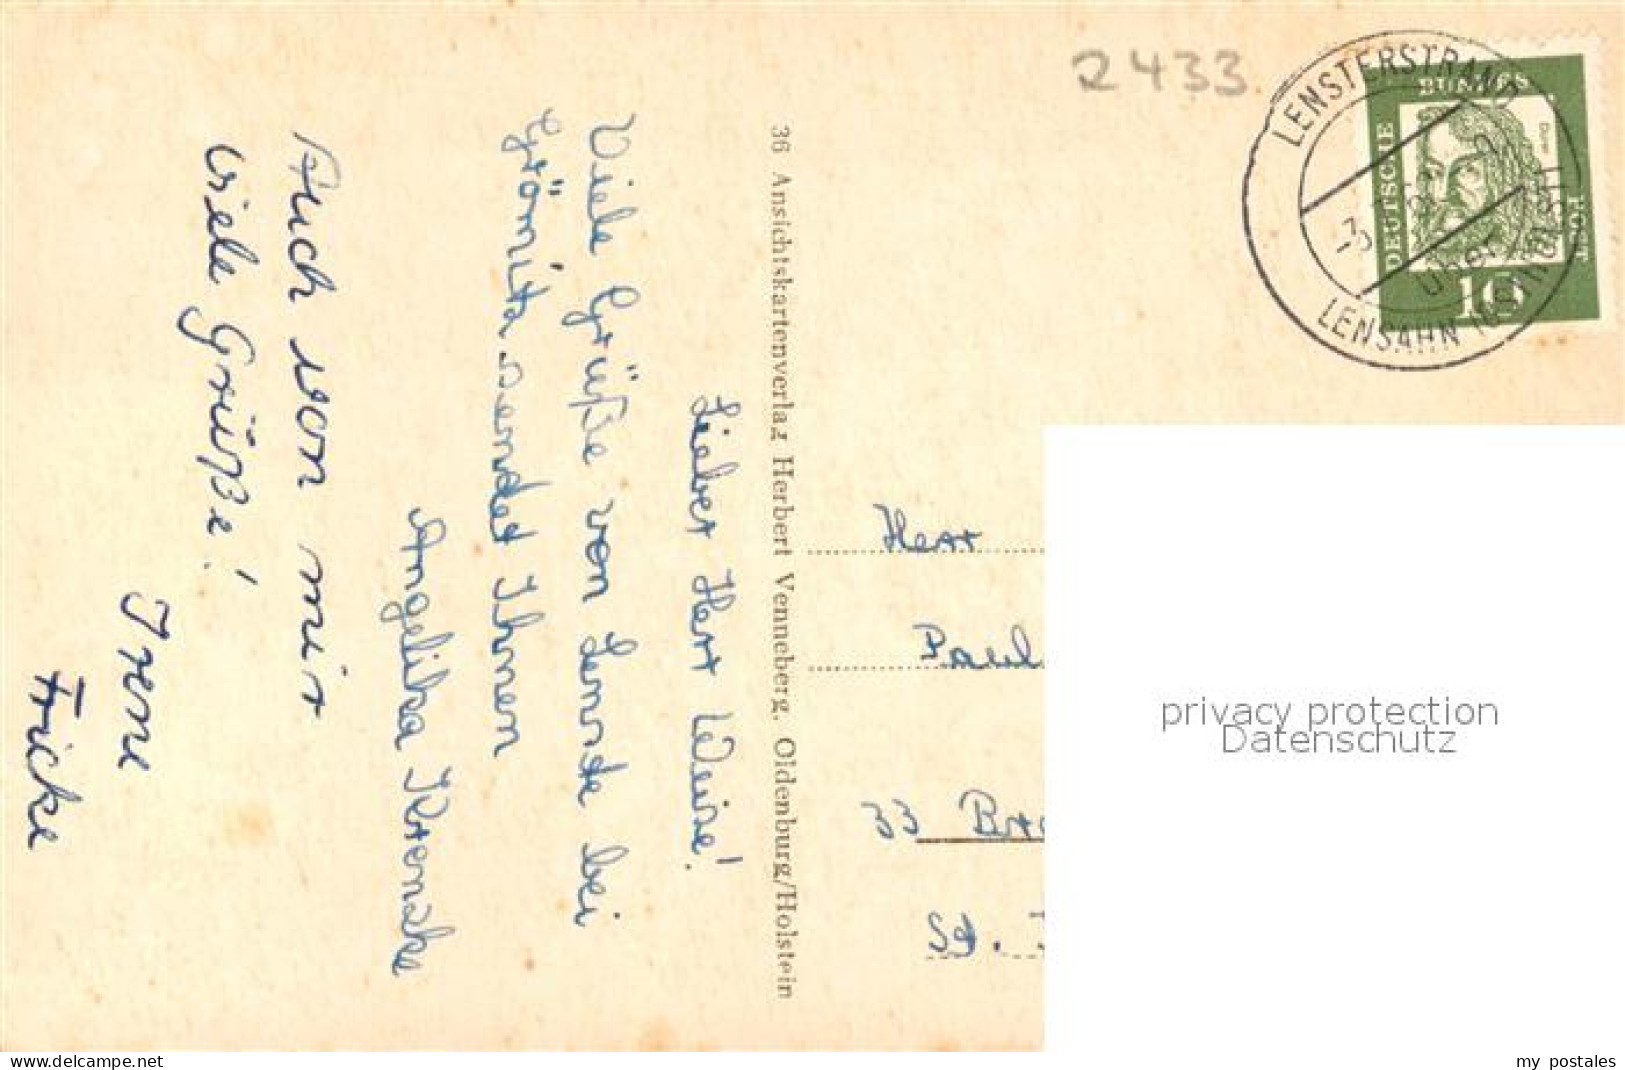 2433
LENSTERSTRAND
LENSAHN
DEUTSCHE
BUNDES
POST
Dürer
10
Lieber Herr Weise!
Viele Grüße von Lenste bei
Grömitz sendet Ihnen
Angelika Kronske
Auch von mir
viele Grüße!
Irene
Fricke
36 Ansichtskartenverlag Herbert Venneberg, Oldenburg/Holstein
Herr
Paul
33 Bra
St.
privacy protection
Datenschutz
www.delcampe.net
my postales